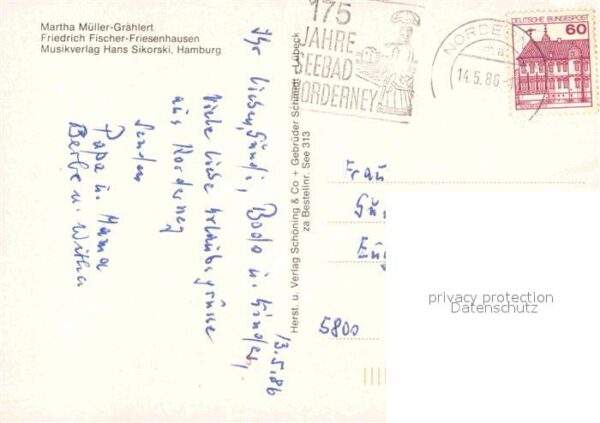 Martha Müller-Grählert
Friedrich Fischer-Friesenhausen
Musikverlag Hans Sikorski, Hamburg
175
JAHRE
SEEBAD
NORDERNEY
NORDER
14.5.86
DEUTSCHE BUNDESPOST
60
13.5.86
Ihr lieben, Gundi, Bodo u. Kinder,
viele liebe Urlaubsgrüsse
aus Norderney
senden
Papa u. Mama
Berbe u. Witha
Herst. u. Verlag Schöning & Co + Gebrüder Schmidt · Lübeck
za Bestellnr. See 313
Frau
Gu
Eug
5800
privacy protection
Datenschutz